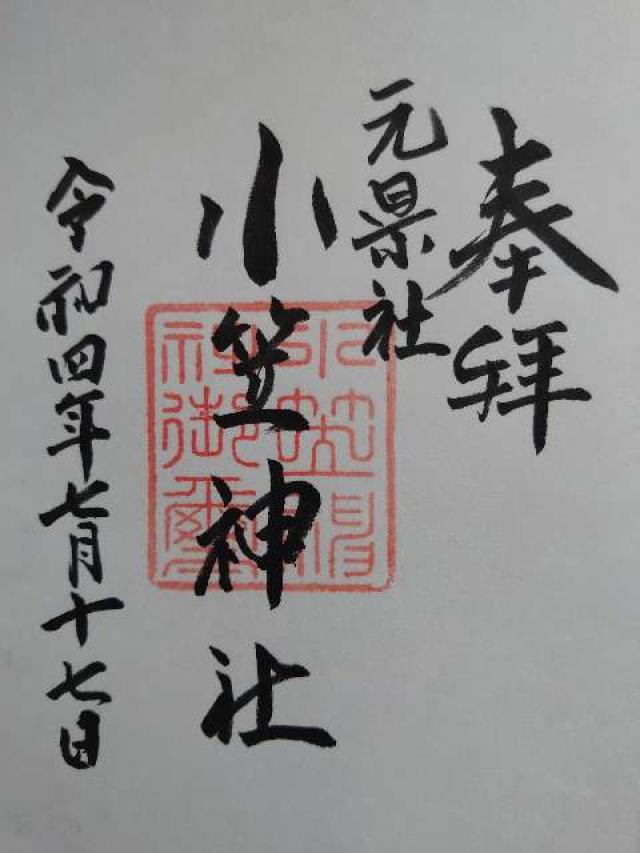 奉拝
元県社
小笠神社
令和四年七月十七日